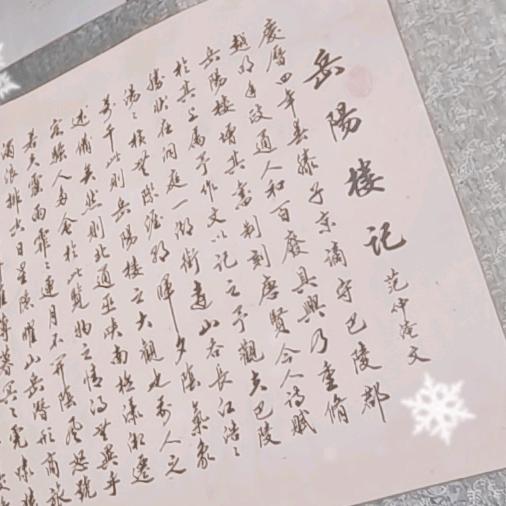 岳陽楼记
范仲淹文
慶曆四年春滕子京谪守巴陵郡
越明年政通人和百廢具興乃重脩
岳陽樓增其舊制刻唐賢今人詩賦
於其上属予作文以记之予觀夫巴陵
勝狀在洞庭一湖銜遠山吞長江浩々
湯々横無際涯朝暉夕陰氣象
萬千此則岳陽樓之大觀也前人之
述備矣然則北通巫峡南極潇湘遷
客騷人多會於此覽物之情得無異乎
若夫霪雨霏々連月不開陰風怒號
濁浪排空日星隐曜山岳潛形商旅
薄暮冥々虎嘯猿